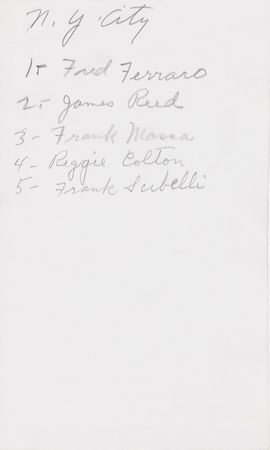 N. Y. City
1- Fred Ferraro
2- James Reed
3- Frank Massa
4- Reggie Colton
5- Frank Scibelli